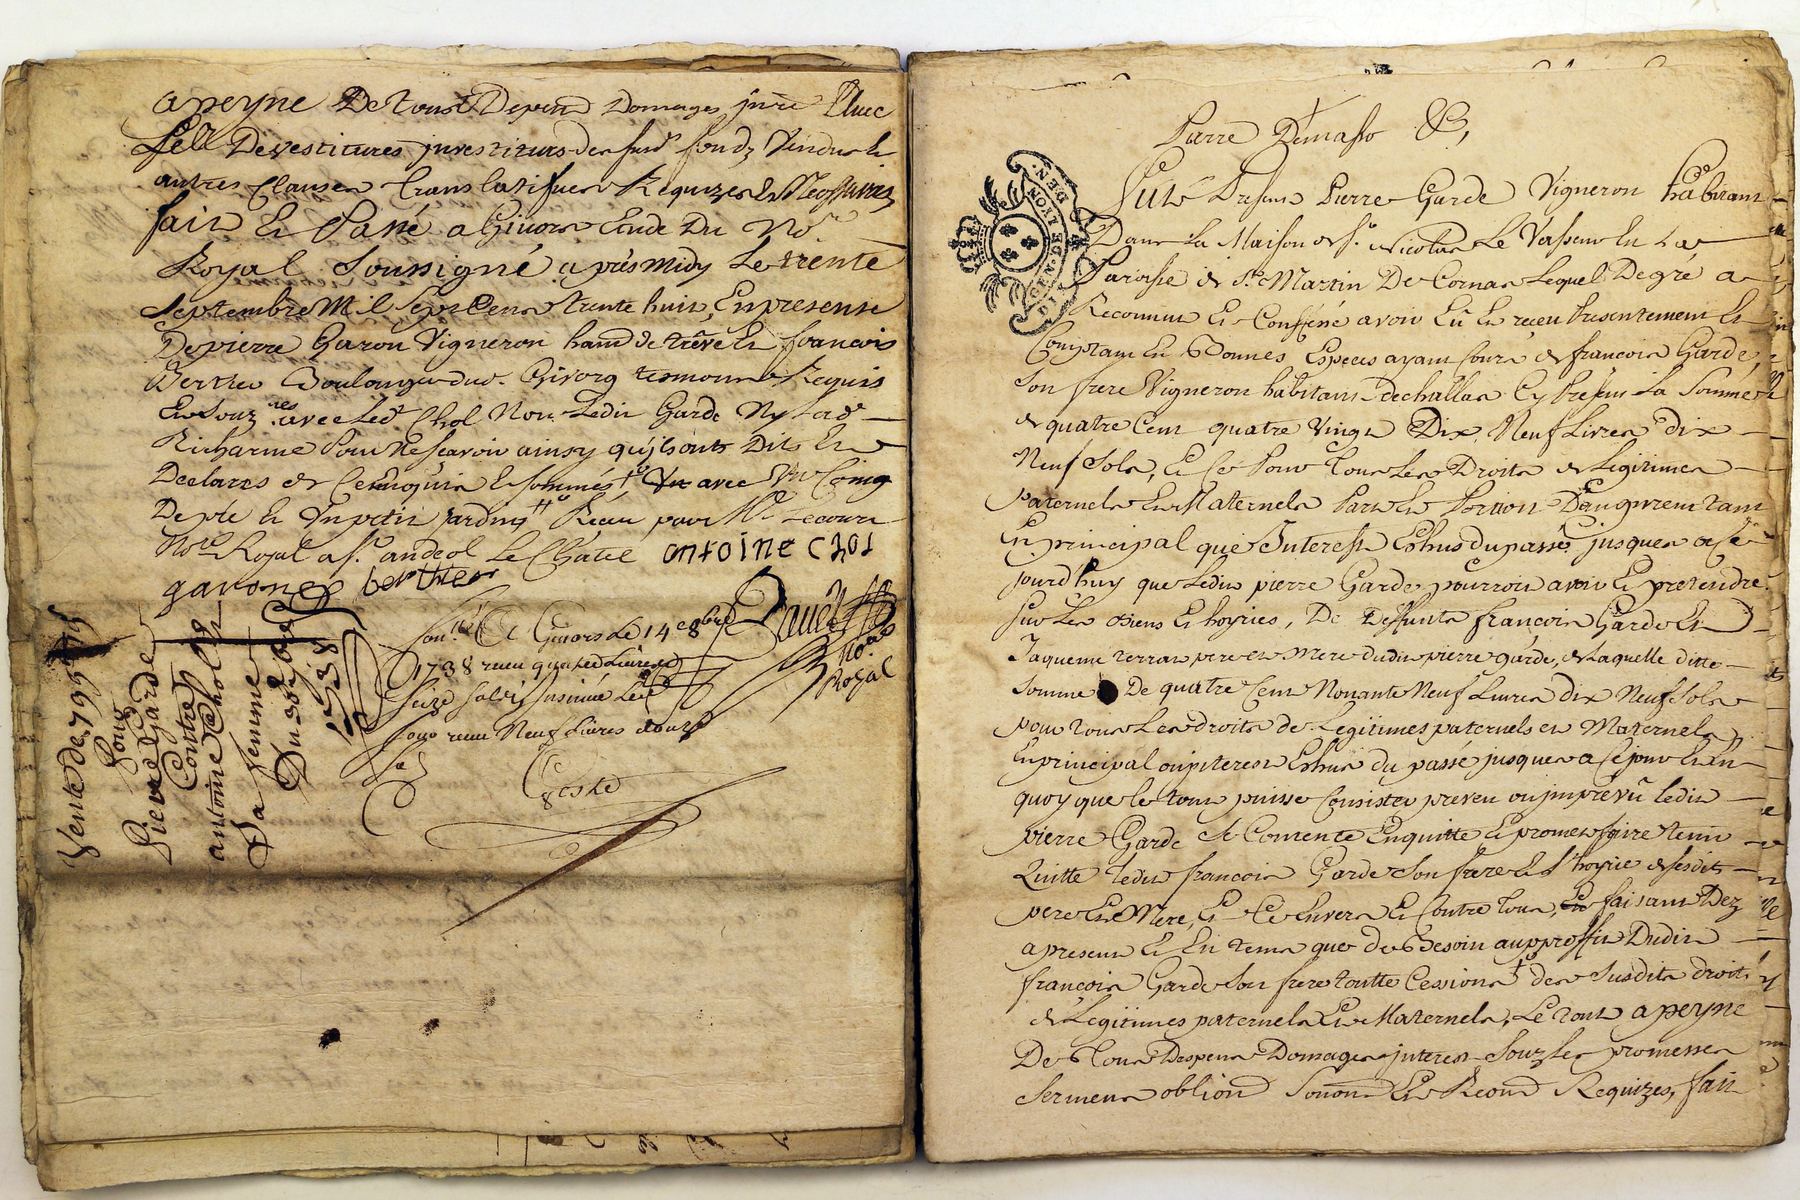 a peyne De tous Depens Domages jnre avec
Les Devestitures jnvestitures des susd fondz Vendus &
autres Clauses translatifves Requizes & Necessaires
fait Et Passé a Givors Etude Du No.re
Royal Soussigné apres midy Le trente
Septembre Mil Sept Cens trente huit, En presense
De pierre Garon Vigneron & francois
Berthier Boulanger dud. Givors temoins Requis
Et Souz.nes avec Led. Chol Non Ledit Garde Ny lad.
Richarme Pour Ne scavoir ainsy qu'ils ont Dit Et
Declarés de Ce Enquis & sommés
De pré & Un petit Jardin
No.re Royal a s.t andeol Le Chatel antoine chol
garon berthier
Con.llé A Givors Le 14 8bre Davel
1738 receu quatre Livres no.re
Seize solz Insinué Led Royal
jour receu Neuf Livres douze
sols
Coste
Vente de 795
Pour
Pierre Garde
Contre
antoine Chol &
Sa femme
Du 30 7bre
1738
Parre Demasso &,
GN. DE LYON
Fut Present Pierre Garde Vigneron habitant
Dans La Maison de S.r Nicolas Le Vasseur En La
Paroisse de S.t Martin De Cornas Lequel De gré a
Reconnu Et Confessé avoir Eû Et receu Presentement Et
Comptant En Bonnes Especes ayant Cours de francois Garde
Son frere Vigneron habitant dechallas Cy Present La Somme
de quatre Cent quatre Vingt Dix Neuf Livres dix
Neuf Sols, Et Ce Pour Tous Les Droits de Legitimes
Paternels Et Maternels Part Et Portion D'augment tant
En principal que Interest Echus du passé jusques a Ce
jourd'huy que Ledit pierre Garde pourroit avoir Et pretendre
Sur Les Biens Et hoyries, De Deffunts francois Garde Et
Jaqueme terras pere et Mere dudit pierre garde, de Laquelle ditte
Somme De quatre Cent Nonante Neuf Livres dix Neuf Sols
pour tous Les droits de Legitimes paternels et Maternels
En principal ou jnterest Echus du passé jusques a Ce jour Et En
quoy que le tout puisse Consister preveu ou jmpreveu ledit
pierre Garde se Contente En quitte Et promet faire tenir
Quitte ledit francois Garde Son frere Et L'hoyrie de sesdits
pere Et Mere, Et Ce Envers Et Contre tous, faisant Dez
a present Et En tems que de Besoin au proffit Dudit
francois Garde Son frere toutte Cessions des Susdits droits
de Legitimes paternels Et Maternels, Le tout a peyne
De Tous Despens Domages jnterest Souz Les promesses
Serment oblion Et Requizes, fait